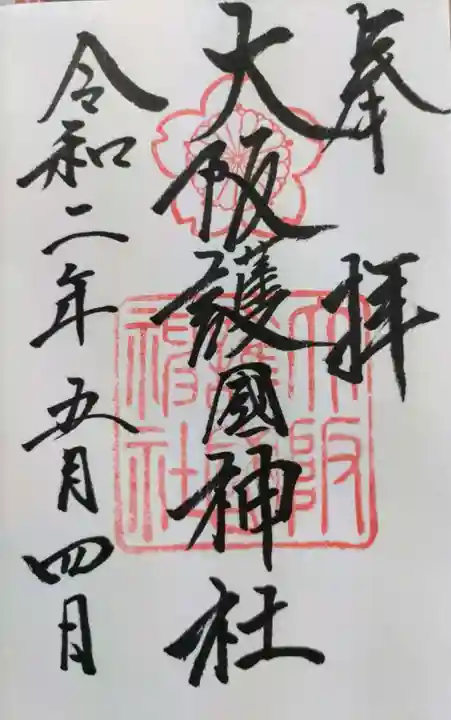 奉拝
大阪護國神社
令和二年五月四日
大阪護國神社